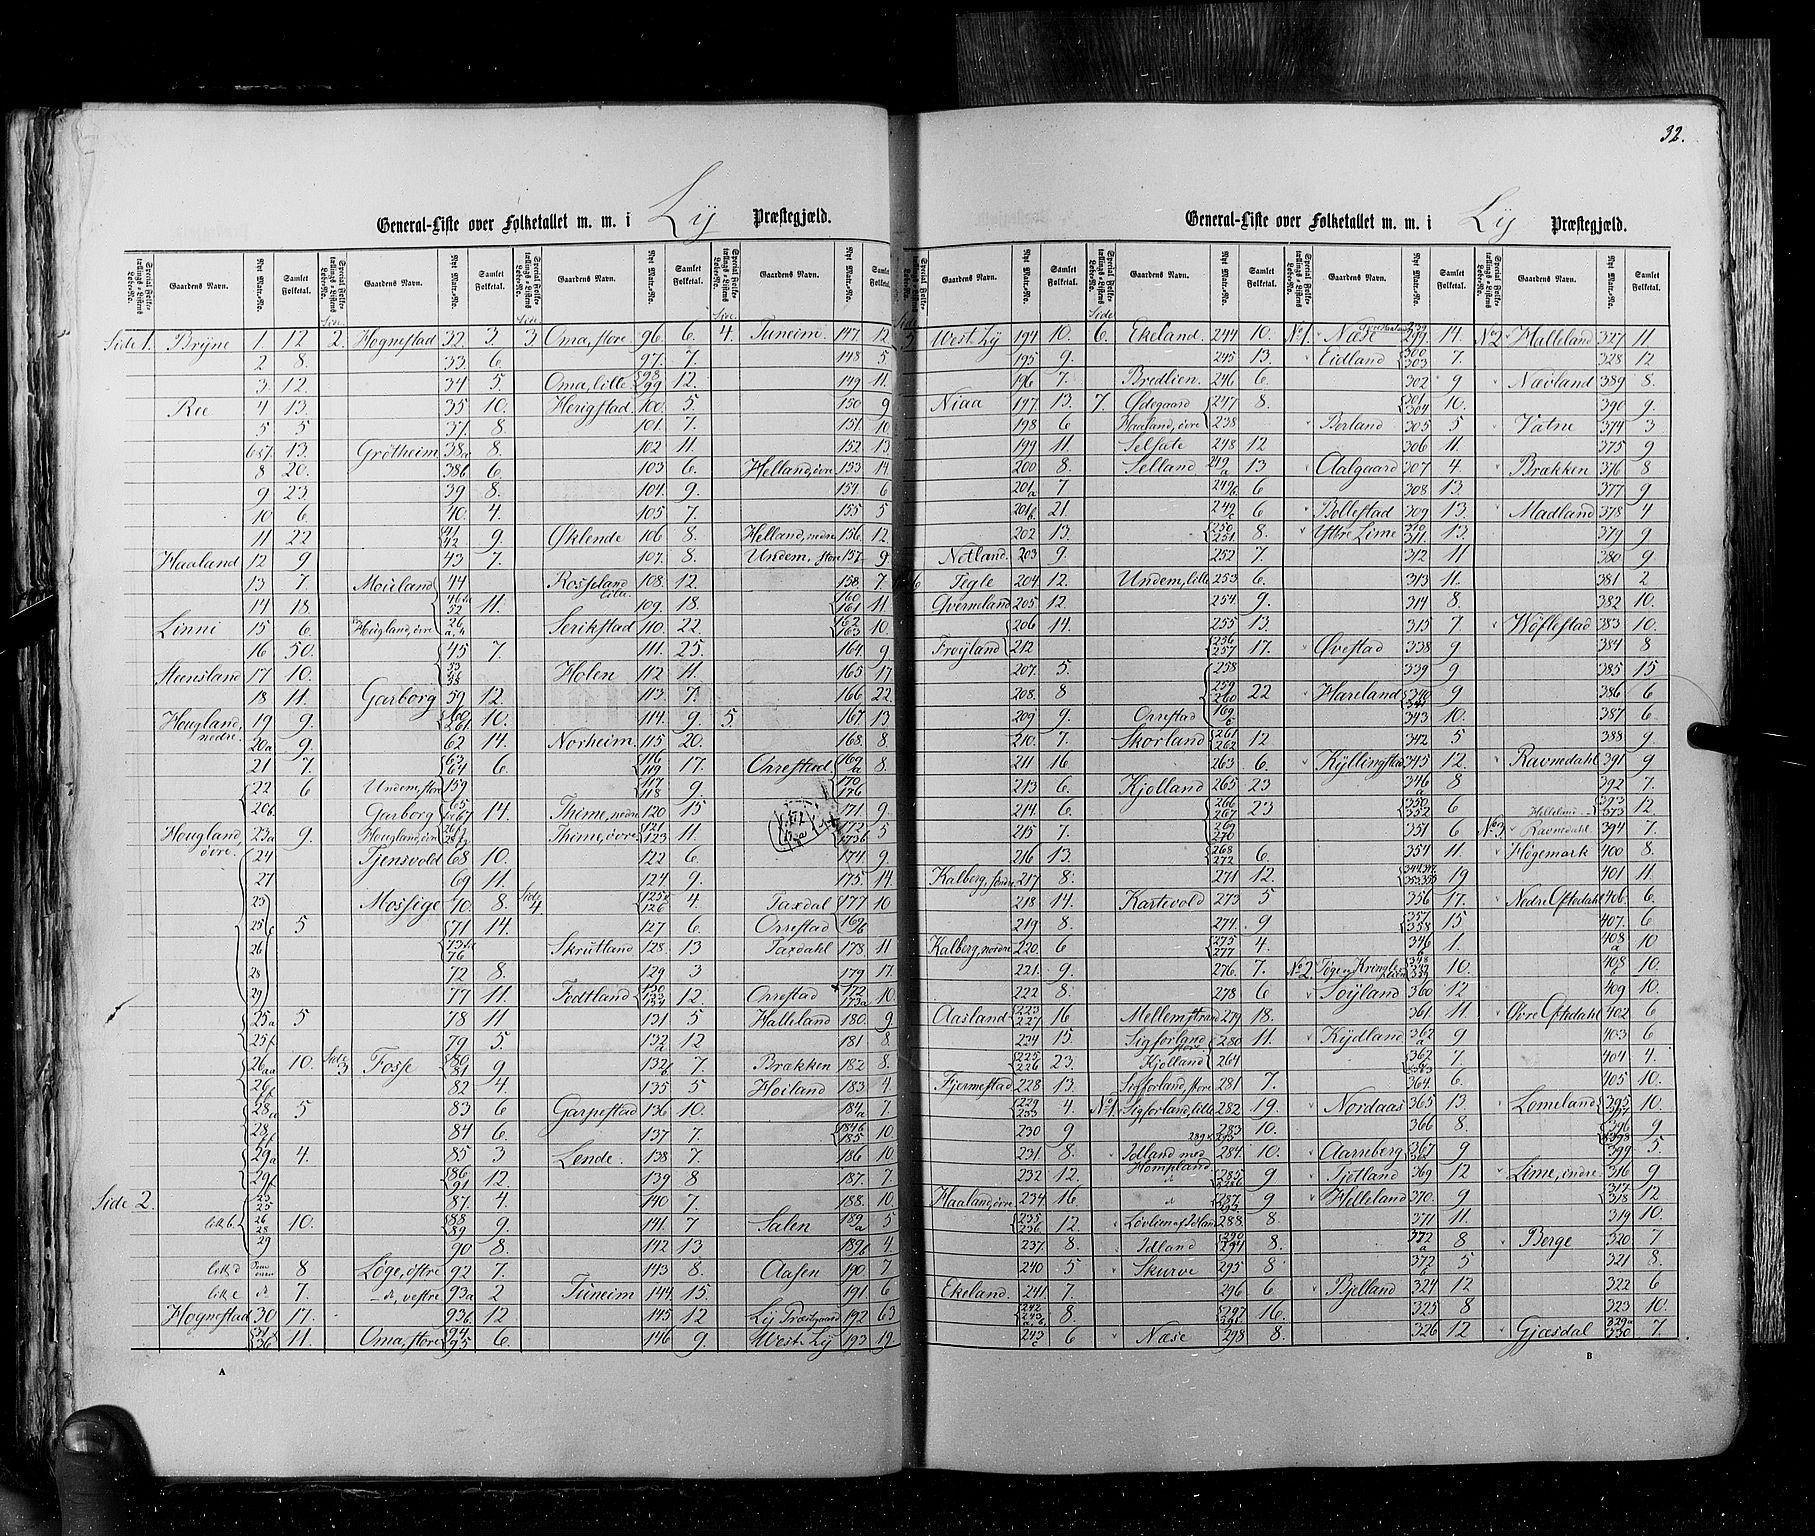 32.
General-Liste over Folketallet m. m. i Ly Præstegjæld.
Special Folketællings-Listens Løbe-No. Gaardens Navn. Nyt Matr.-No. Samlet Folketal.
Side 1. Bryne 1. 12
2 8.
3 12.
Ree 4 13.
5 5
6&7 13.
8 20.
9 23.
10 6.
11 22
Haaland 12 9
13 7.
14 18.
Linni 15 6.
16 50.
Steensland 17 10.
18 11.
Hougland, nedre. 19 9.
20a 9.
21 7.
22 20b 6
Hougland øvre. 23a 9.
24
27
23
25 5
26
28
29
25a 5
25f
26aa 10.
26
28a 5
28
29a 4.
29f
Side 2. 23 25
litt b. 26 28 10.
29
litt d 8
litt e 7.
Hognestad 30 17.
31 36 11.
Side.
2. Hognestad 32. 3.
33. 6.
34 5.
35 10.
37. 8
Grötheim 38a 8.
38b 6.
39 8.
40. 4.
41 42 9.
43 7.
Moieland 44
52 11.
Hougland, øvre 26
45 7.
53 58
Garborg 59 12.
60 61 10.
62 14.
63 64 6.
Undem, store 159
Garborg 65 67 14.
Hougland, øvre
Tjensvold 68 10.
69 11.
Mossige 70. 8.
71 14.
76
72 8.
77 11.
78 11
79 5.
Side 3 Fosse 80 81 9
82 4.
83 6
84 6.
85 3
86 91 12.
87 4.
88 89 9.
90 8.
Løge, østre 92 7.
do, vestre 93a 2
93b 12
Oma, store 94 95 6.
Side.
3. Oma, store 96 6.
97. 7.
Oma, lille. 98 99 12.
Herigstad 100. 5.
101. 7.
102 11.
103 6.
104. 9.
105 7.
Øklende 106 8.
107. 8.
Rosseland lille 108. 12.
109. 18.
Serikstad 110. 22.
111. 25.
Holen 112 11.
113. 7.
114. 9.
Norheim. 115 20.
116 119 17.
117 118 9.
Thime, nedre 120 15
Thime, øvre 121 123 11.
122 6.
124 9.
Side 4 125 126 4.
127 6.
Skrutland 128. 13
129 3
Fodtland 130 133 134 12.
131 5
132a 12
132b 7.
135 5
Garpestad 136 10.
137 7.
Lende. 138 7.
139 8
140 7.
141. 7
142 13
143 8.
Tuneim 144 15.
145 12
146 9.
Side.
4. Tuneim. 147. 12
148 5
149 11.
150 9
151 10
152 13
Helland, øvre 153 14
154 6
155 5
Helland, nedre 156 12.
Undem, store 157 9.
158 7
160 161 11.
162 163 10.
164 9
165 17
166 22.
5 167 13
168. 8.
Orrestad. 169a 8.
170. 176
172 173a 171 9.
172 173b 5
174 9.
175 14.
Taxdal 177 10
Orrestad 169b
Taxdahl 178 11
179 17.
Orrestad 172 173a 10.
Halleland 180. 9
181 8
Brækken 182 8.
Hoiland 183 4
184a 7.
184b 185 10.
186 10
187. 7.
188. 10.
Salen 189a 5
189b 4.
Aasen 190 7
191 6
Ly Præstgaard 192 63
West Ly 193 19.
A
General-Liste over Folketallet m. m. i Ly Præstegjæld.
Special Folketællings-Listens Løbe-No. Gaardens Navn. Nyt Matr.-No. Samlet Folketal.
Side
5 West Ly 194 10.
195 9.
196 7.
Niaa 197 13.
198 6
199 11.
200 8.
201a 7
201b 21.
202 13.
Netland 203 9.
6 Tegle 204. 12.
Qverneland 205 12.
206 14.
Frøyland 212
207. 5.
208. 8
209 9.
210. 7.
211 16
213 6.
214 6.
215 7.
216 13.
Kalberg, søndre 217 8.
218 14.
219 8.
Kalberg, nordre 220. 6
221. 9.
222 8.
Aasland 223 227 16
234 15.
225 226 23
Fjermestad 228 13.
229 233 4.
230 9
231. 8.
232 12.
Haaland, øvre 234 16
235 236 12.
237. 8.
240 5
Ekeland. 241 7.
242 243 8.
243c 6
Side
6. Ekeland 244 10.
245 13.
Bredlien. 246 6.
7. Ødegaard 247 8.
Haaland, øvre 238
Selsate 248 12
Selland 249a 13
249b 6
249c 6
250 251 8.
252 7
Undem, lille 253 6.
254 9.
255 13.
256 257 17.
258
259 260 22
Orrestad 169
Skorland 261 262 12
263 6.
Kjolland 265 23
266 267 23
269 270
268 272 6.
271 12.
Kartevold 273 5
274. 9
275 277 4.
276. 7.
278 6
Mellemstrand 279 18.
Sigforland store 280 11.
Kjolland 264
Sigforland, store 281 7.
No 1. Sigforland, lille 282 19.
283 10.
Idland med Hompland 284. 10.
285 9
287 9
Løvlien af Idland 288. 8
Idland 294 8.
Skurve 295 8
296 6
297 16.
Næse 298 8.
No 1. Næse 299 14.
Eidland 300 303 7.
302 9
301 304 10.
Berland 305 5
306 11.
Aalgaard 307 4.
308 13.
Bollestad 309 13.
Ystre Lime 310 311 13.
312 11
313 11.
314 8.
315 7
Øvestad 338 9
339 9
Hareland 340 9
343 10.
342 5
Kyllingstad 345 12.
346a 8
350 352 6
351 6
354 11.
19
356 17.
357 358 15
346 1.
No 2. 10.
Soyland 360 12
361. 11
Kydland 362a 9
362 7
364. 6.
Nordaas 365 13
366 8.
Aarnberg 367 9
Tjotland 369 12
Helleland 370. 9
371 11.
372a 8
372b 5
Bjelland 324 12
325 8
326 12
No 2 Halleland 327 11
328 12
Nævland 389 8.
390 9.
Vatne 374 3
375 9
Brækken 376 8
377 9
Madland 378 4
379 9
380 9.
381 2
382 10.
Wøflestad 383 10.
384 8
385 15
386 6
387 6.
388 9.
Ravnedahl 391 9
392 7.
Helleland 393 12
No 3 Ravnedahl 394 7.
Høgemark 400 8.
401 11.
Nedre Oftedahl 406. 6.
407. 6
408a 10
408b 10.
409 10.
Øvre Oftedahl 402 6
403 6
404 4.
405 10.
Lomeland 395 397 10.
396 398 9
399 5
Lime, indre 316 9
317 318 12
319 10.
Berge 320 7
321 8.
322 6
323 10.
Gjæsdal 329a 330 7.
B